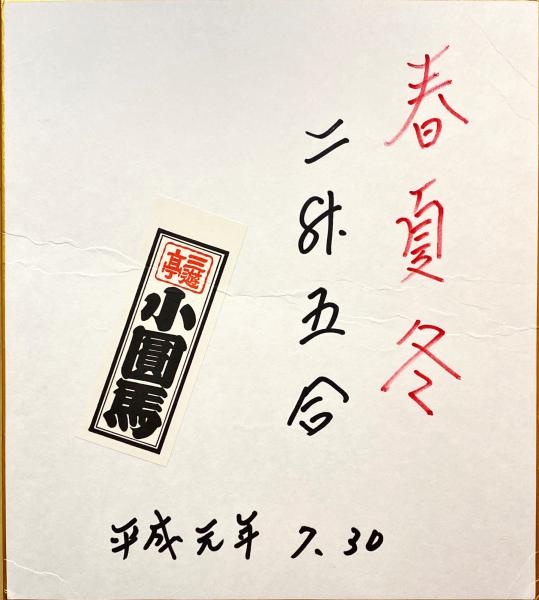 春夏冬
二升五合
三遊亭
小圓馬
平成元年 7.30